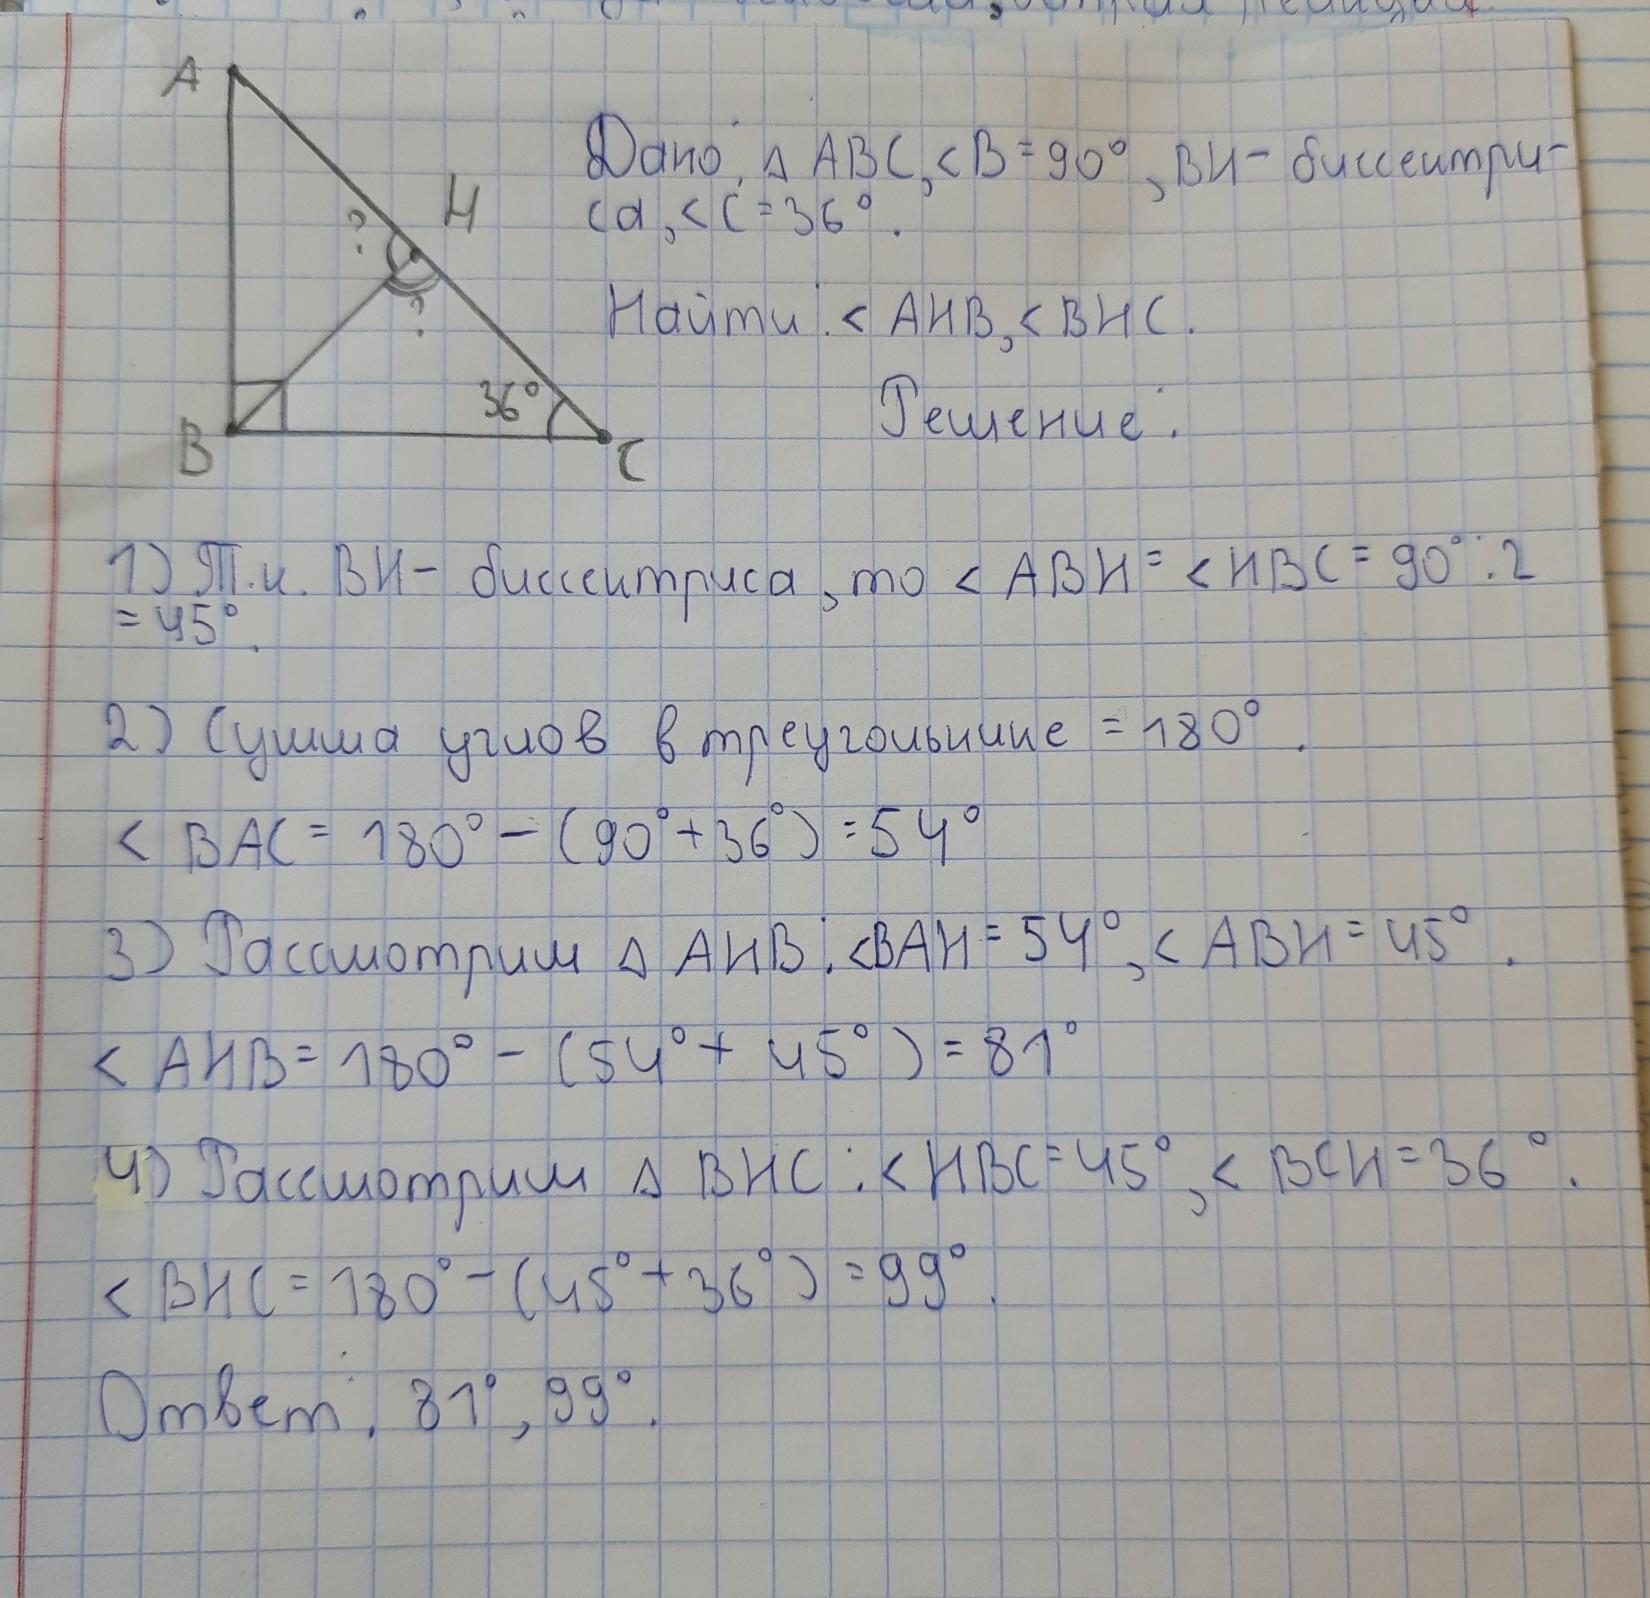 A
H
?
?
36°
B
C
Дано: △ ABC, <B=90°, BH- биссектри-
са, <C=36°.
Найти: < AHB, < BHC.
Решение:
1) Т.к. BH- биссектриса, то < ABH = < HBC = 90°:2
= 45°.
2) Сумма углов в треугольнике = 180°.
< BAC = 180° - (90°+36°) = 54°
3) Рассмотрим △ AHB: <BAH = 54°, < ABH = 45°.
< AHB = 180° - (54° + 45°) = 81°
4) Рассмотрим △ BHC: < HBC = 45°, < BCH = 36°.
< BHC = 180° - (45° + 36°) = 99°.
Ответ: 81°, 99°.